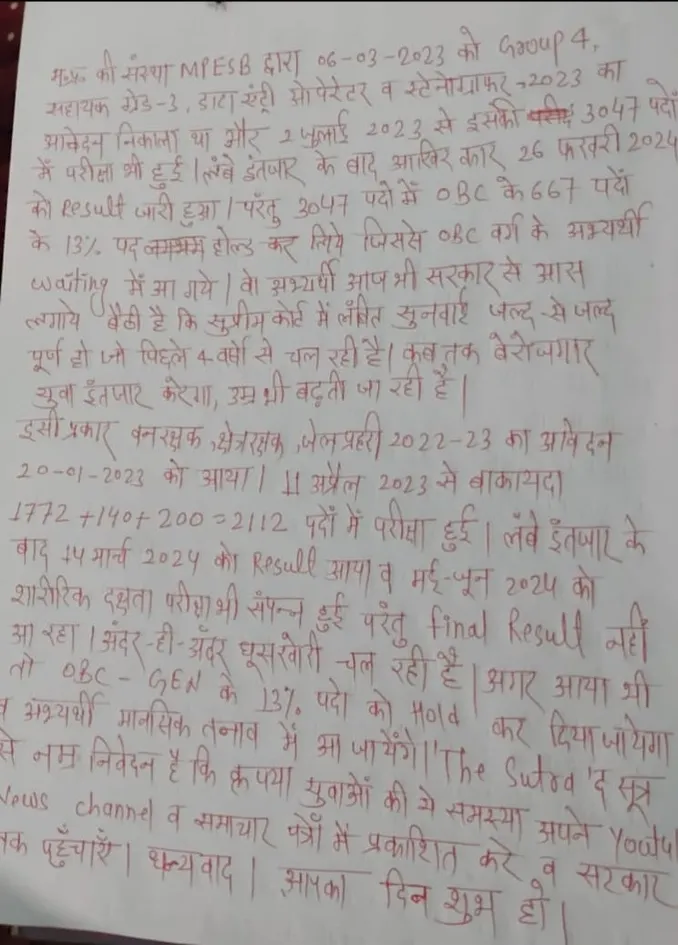 म.प्र. की संस्था MPESB द्वारा 06-03-2023 को Group 4,
सहायक ग्रेड-3, डाटा एंट्री ओपेरेटर व स्टेनोग्राफर-2023 का
आवेदन निकाला था और 2 जुलाई 2023 से इसकी 3047 पदों
में परीक्षा भी हुई। लंबे इंतजार के बाद आखिर कार 26 फरवरी 2024
को Result जारी हुआ। परंतु 3047 पदो में OBC के 667 पदों
के 13% पद होल्ड कर लिये जिससे OBC वर्ग के अभ्यर्थी
waiting में आ गये। वो अभ्यर्थी आज भी सरकार से आस
लगाये बैठी है कि सुप्रीम कोर्ट में लंबित सुनवाई जल्द-से-जल्द
पूर्ण हो जो पिछले 4 वर्षो से चल रही है। कब तक बेरोजगार
युवा इंतजार करेगा, उम्र भी बढ़ती जा रही है।
इसी प्रकार वनरक्षक, क्षेत्ररक्षक, जेल प्रहरी 2022-23 का आवेदन
20-01-2023 को आया। 11 अप्रैल 2023 से बाकायदा
1772+140+200=2112 पदों में परीक्षा हुई। लंबे इंतजार के
बाद 14 मार्च 2024 को Result आया व मई-जून 2024 को
शारीरिक दक्षता परीक्षा भी संपन्न हुई परंतु final Result नहीं
आ रहा। अंदर-ही-अंदर घूसखोरी चल रही है। अगर आया भी
तो OBC-GEN के 13% पदो को Hold कर दिया जायेगा
व अभ्यर्थी मानसिक तनाव में आ जायेंगे। 'The Sutra' द सूत्र
से नम्र निवेदन है कि कृपया युवाओं की ये समस्या अपने
News channel व समाचार पत्रों में प्रकाशित करे व सरकार
तक पहुँचाएँ। धन्यवाद। आपका दिन शुभ हो।